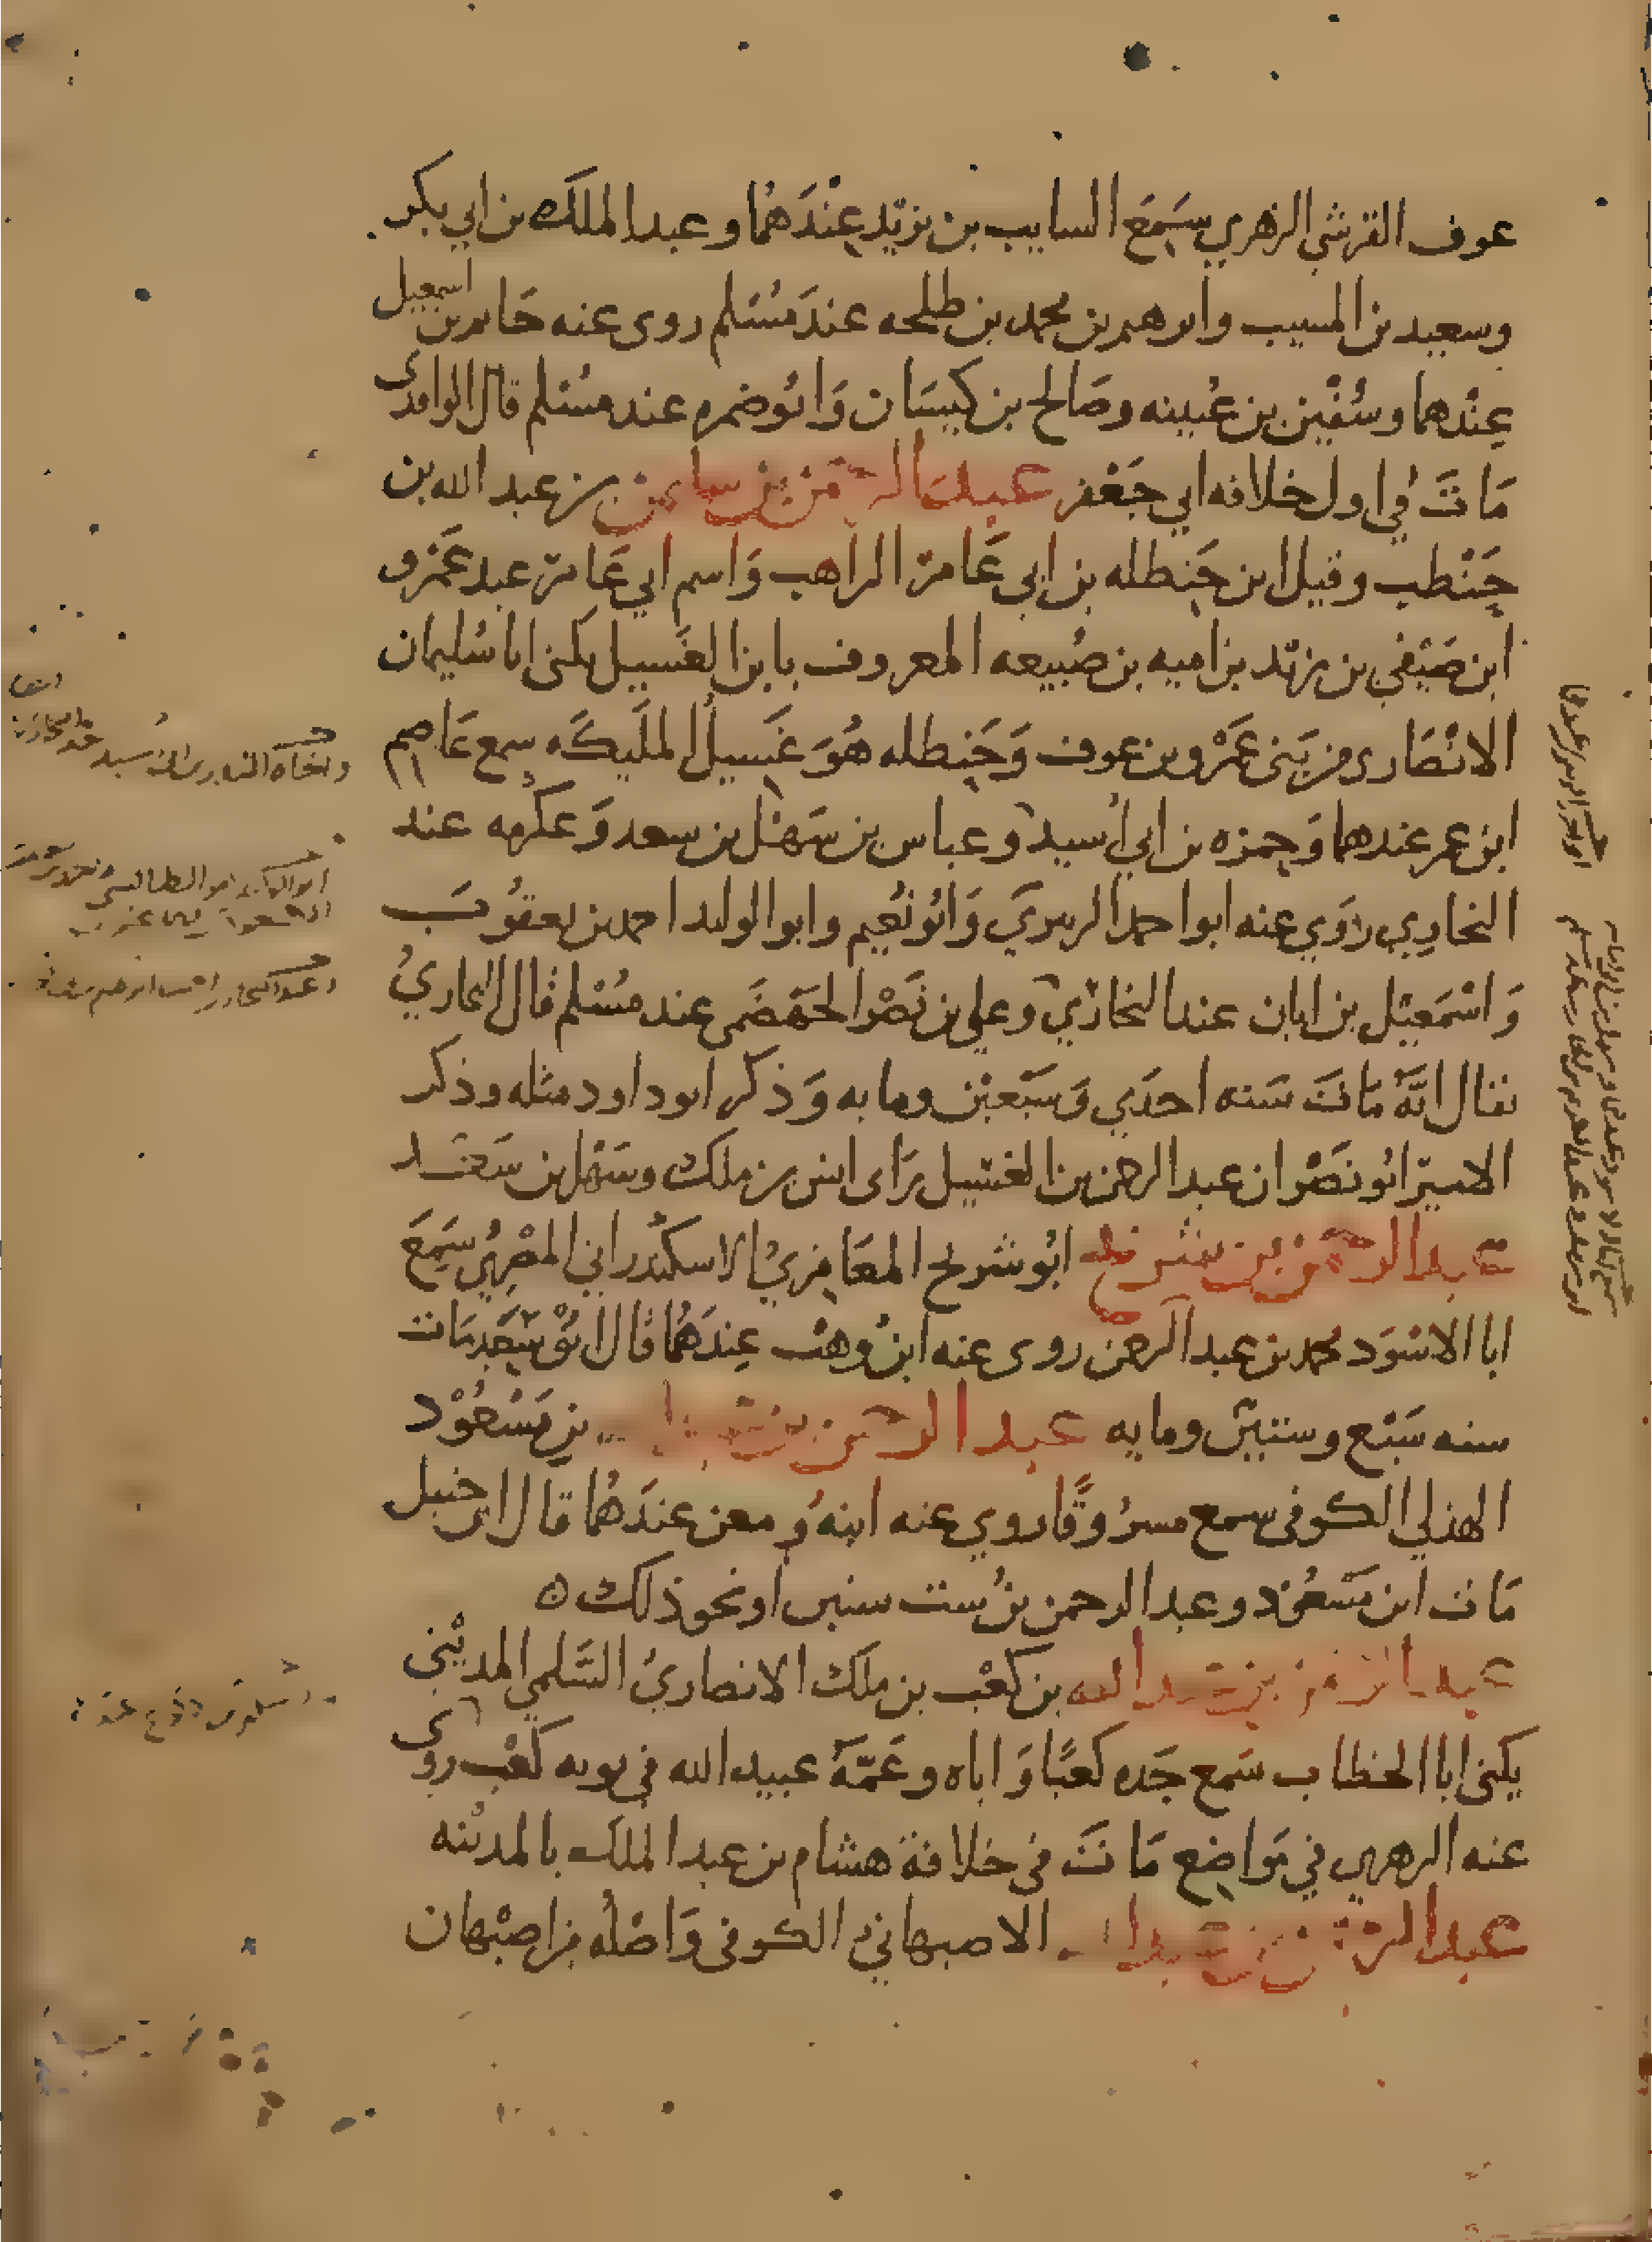 عوف القرشي الزهري سَمِعَ السايب بن يزيد عِنْدَهُما وعبد الملك بن ابي بكر
وسعيد بن المسيب وابرهيم بن محمد بن طلحه عندَ مُسْلم روى عنه حَاتم بن اسمعيل
عِنْدهما وسُفْيٰن بن عُيينه وصَالح بن كيسَان وَابُو ضمره عند مسْلم قال الواقدى
مَاتَ في اول خلافه ابي جَعْفر عبد الرحمن بن سليمن بن عبد الله بن
حَنْطب وقيل ابن حَنطله بن ابي عَامر الراهب وَاسم ابي عَامر عبد عَمْرو
ابن صَيْفي بن زيد بن اميه بن ضُبيعه المعروف بابن الغَسيل يكنى ابا سُليمان
الانْصَارى من بَنى عَمْرو بن عوف وَحَنطله هُوَ غَسيلُ الملَيكَه سمع عَاصم
ابن عمر عندهما وَحمزه بن ابي أُسيد وعباس بن سَهْل بن سعد وَعكرمه عند
البخاري روَي عنه ابو احمد الزبيري وَابُو نُعيم وابو الوليد احمد بن يعقُوبَ
وَاسْمَعيْل بن ابان عند البخاري وعلي بن نَصْر الجَهْضَمى عند مسْلم قال البخاريُ
يقال انَّهُ مَاتَ سَنه احدَي وَسَبْعيْن ومايه وَذكر ابو داود مثله وذكر
الاميرُ ابُو نَصْر ان عبد الرحمن بن الغسيل رَاى انس بن ملك وسَهْل بن سَعْد
عبد الرحمن بن شريح ابُو شريح المعَافِريُ الاسكندراني المصْرِيُ سَمِعَ
ابا الاسْوَد محمد بن عبد الرحمن روى عنه ابنُ وهْب عِندَهُما قال ابُو سَعيد مَات
سنه سَبْع وستين ومايه عبد الرحمن بن عبد الله بن مَسْعُوْد
الهذلي الكوفى سمع مسرُوقًا روي عنه ابنهُ معن عندَهُما قال ابن حنبل
مَات ابن مَسْعُود وعبد الرحمن بنُ ست سنين او نحو ذلك ه
عبد الرحمن بن عبد الله بن كعْب بن ملك الانصاريُ السَّلمي المدينى
يكنى ابا الخطاب سَمع جَده كعبًا وَاباه وعَمّهُ عبيد الله في توبه كعْب روى
عنه الزهري في مَواضِع مَاتَ فى خلافة هشام بن عبد الملك بالمدينه
عبد الرحمن بن عبد الله الاصبهاني الكوفى وَاصْلُه من اصْبهان